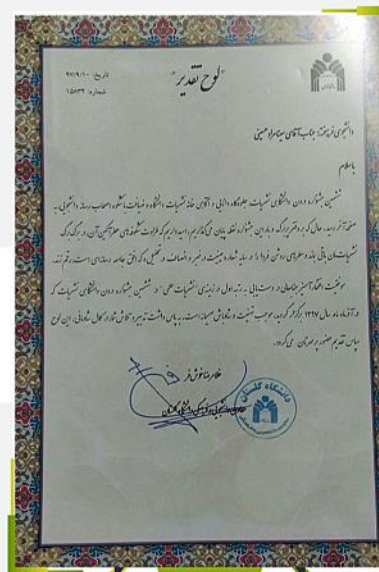 "لوح تقدیر"
تاریخ: ۹۷/۹/۱۰
شماره: ۱۵۸۳۲
دانشجوی فرهیخته؛ جناب آقای سینا مراد حسینی
با سلام
ششمین جشنواره درون دانشگاهی نشریات، جلوه‌گاه دانایی و آگاهی خانه نشریات دانشگاه و ضیافت باشکوه اصحاب رسانه دانشجویی به
صفحه آخر رسید. حال که بر دفتر بزرگ و پربار این جشنواره نقطه پایان می‌گذاریم، امید داریم که طراوت شکوفه‌های عطرآگین آن، در برگ برگ
نشریات‌مان باقی بماند و سطرهای روشن فردا را در سایه شماره عینیت در خبر و انصاف در تحلیل، که افق جامعه رسانه‌ای است، رقم زند.
موفقیت افتخارآمیز جنابعالی در دست‌یابی به رتبه اول در زمینه‌ی نشریات علمی در ششمین جشنواره درون دانشگاهی نشریات که
در آذر ماه سال ۱۳۹۷ برگزار گردید، موجب تهنیت و شادباش صمیمانه است. به پاس داشت تدبیر و تلاش شما، در کمال شادمانی، این لوح
سپاس تقدیم حضور پرمهرتان می‌گردد.
غلامرضا خوش فر
معاون دانشجویی و فرهنگی دانشگاه گلستان
دانشگاه گلستان